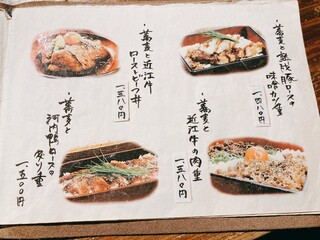 ・蕎麦と熟成豚ロースの
味噌カツ重
一、四八〇円
・蕎麦と近江牛
ローストビーフ丼
一、三八〇円
・蕎麦と
近江牛の肉重
一、三八〇円
・蕎麦と
河内鴨ロースの
炙り重
一、五〇〇円